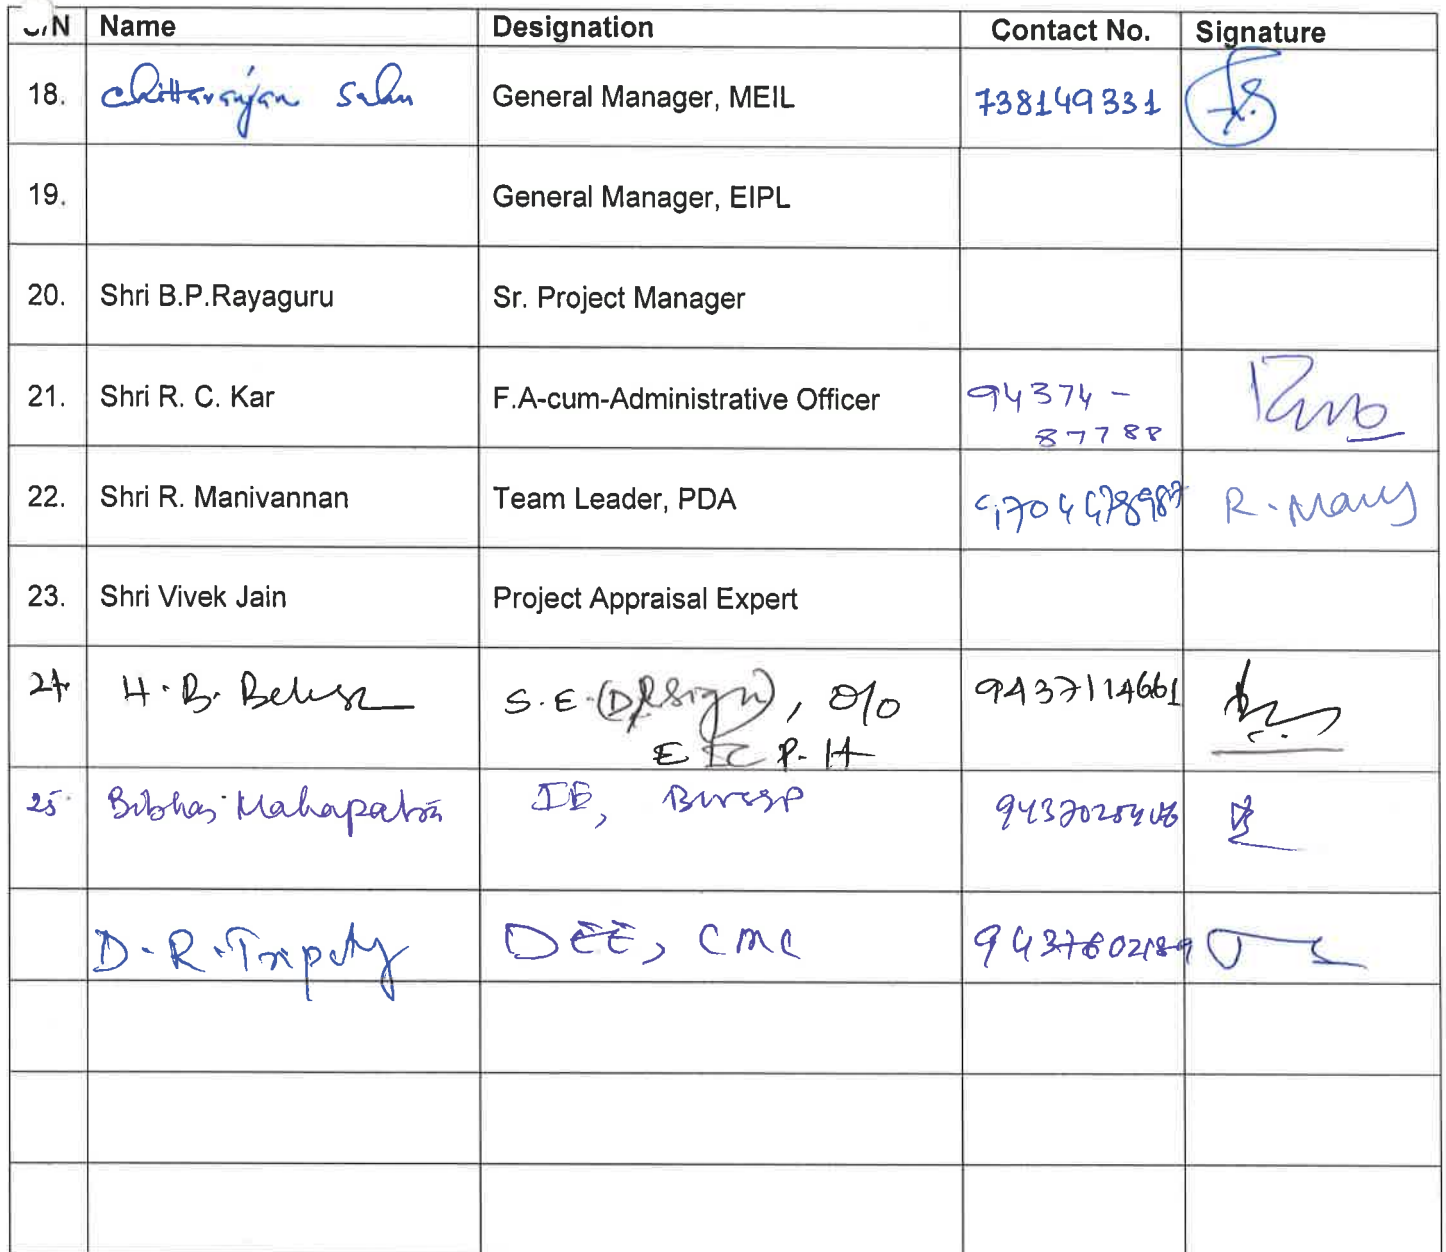 S/N Name Designation Contact No. Signature
18. Chittaranjan Sahu General Manager, MEIL 738149331
19. General Manager, EIPL
20. Shri B.P.Rayaguru Sr. Project Manager
21. Shri R. C. Kar F.A-cum-Administrative Officer 94374-
87788
22. Shri R. Manivannan Team Leader, PDA R. Many
23. Shri Vivek Jain Project Appraisal Expert
24. H. B. Behera S.E. (Design), O/o 9437114661
EIC P.H
25. Bibhas Mahapatra
D. R. Tripathy DEE, CMC 9437802189